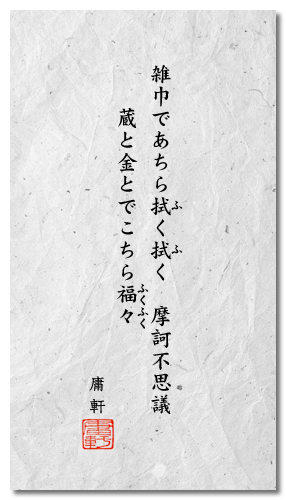 雑巾であちら拭く拭く 摩訶不思議
蔵と金とでこちら福々
庸軒